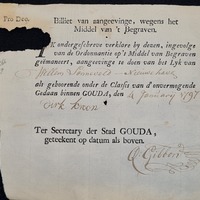 Pro Deo.
Billet van aangeevinge, wegens het
Middel van 't Begraven.
IK ondergeschreve verklare by deeze, ingevolge
van de Ordonnantie op 't Middel van Begraven
geëmaneert, aangeevinge te doen van het Lyk van
Willem
als gehoorende onder de Classis van d'onvermogende
Gedaan binnen GOUDA, den January 1797
Ter Secretary der Stad GOUDA,
geteekent op datum als boven.